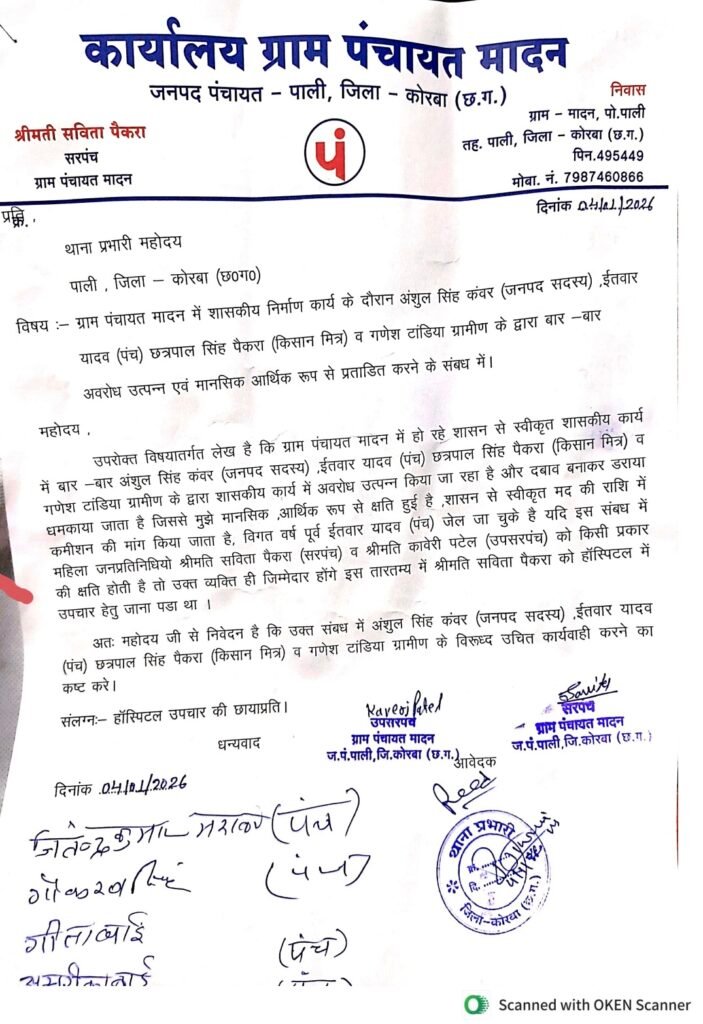 कार्यालय ग्राम पंचायत मादन
जनपद पंचायत – पाली, जिला – कोरबा (छ.ग.)
श्रीमती सविता पैकरा
सरपंच
ग्राम पंचायत मादन
पं
निवास
ग्राम – मादन, पो.पाली
तह. पाली, जिला – कोरबा (छ.ग.)
पिन.495449
मोबा. नं. 7987460866
प्रति,
दिनांक 04/01/2026
थाना प्रभारी महोदय
पाली , जिला – कोरबा (छ०ग०)
विषय :– ग्राम पंचायत मादन में शासकीय निर्माण कार्य के दौरान अंशुल सिंह कंवर (जनपद सदस्य) ,ईतवार
यादव (पंच) छत्रपाल सिंह पैकरा (किसान मित्र) व गणेश टांडिया ग्रामीण के द्वारा बार –बार
अवरोध उत्पन्न एवं मानसिक आर्थिक रूप से प्रताडित करने के संबध में।
महोदय ,
उपरोक्त विषयातर्गत लेख है कि ग्राम पंचायत मादन में हो रहे शासन से स्वीकृत शासकीय कार्य
में बार –बार अंशुल सिंह कंवर (जनपद सदस्य) ,ईतवार यादव (पंच) छत्रपाल सिंह पैकरा (किसान मित्र) व
गणेश टांडिया ग्रामीण के द्वारा शासकीय कार्य में अवरोध उत्पन्न किया जा रहा है और दबाव बनाकर डराया
धमकाया जाता है जिससे मुझे मानसिक ,आर्थिक रूप से क्षति हुई है ,शासन से स्वीकृत मद की राशि में
कमीशन की मांग किया जाता है, विगत वर्ष पूर्व ईतवार यादव (पंच) जेल जा चुके है यदि इस संबध में
महिला जनप्रतिनिधियो श्रीमति सविता पैकरा (सरपंच) व श्रीमति कावेरी पटेल (उपसरपंच) को किसी प्रकार
की क्षति होती है तो उक्त व्यक्ति ही जिम्मेदार होंगे इस तारतम्य में श्रीमति सविता पैकरा को हॉस्पिटल में
उपचार हेतु जाना पडा था ।
अतः महोदय जी से निवेदन है कि उक्त संबध में अंशुल सिंह कंवर (जनपद सदस्य) ,ईतवार यादव
(पंच) छत्रपाल सिंह पैकरा (किसान मित्र) व गणेश टांडिया ग्रामीण के विरूध्द उचित कार्यवाही करने का
कष्ट करे।
संलग्नः– हॉस्पिटल उपचार की छायाप्रति।
धन्यवाद
Kaveri Patel
उपसरपंच
ग्राम पंचायत मादन
ज.पं.पाली,जि.कोरबा (छ.ग.)
Savita
सरपंच
ग्राम पंचायत मादन
ज.पं.पाली,जि.कोरबा (छ.ग.)
आवेदक
दिनांक 04/01/2026
(पंच)
(पंच)
गीताबाई (पंच)
थाना प्रभारी
क्र.
दि.
जिला-कोरबा (छ.ग.)
Scanned with OKEN Scanner